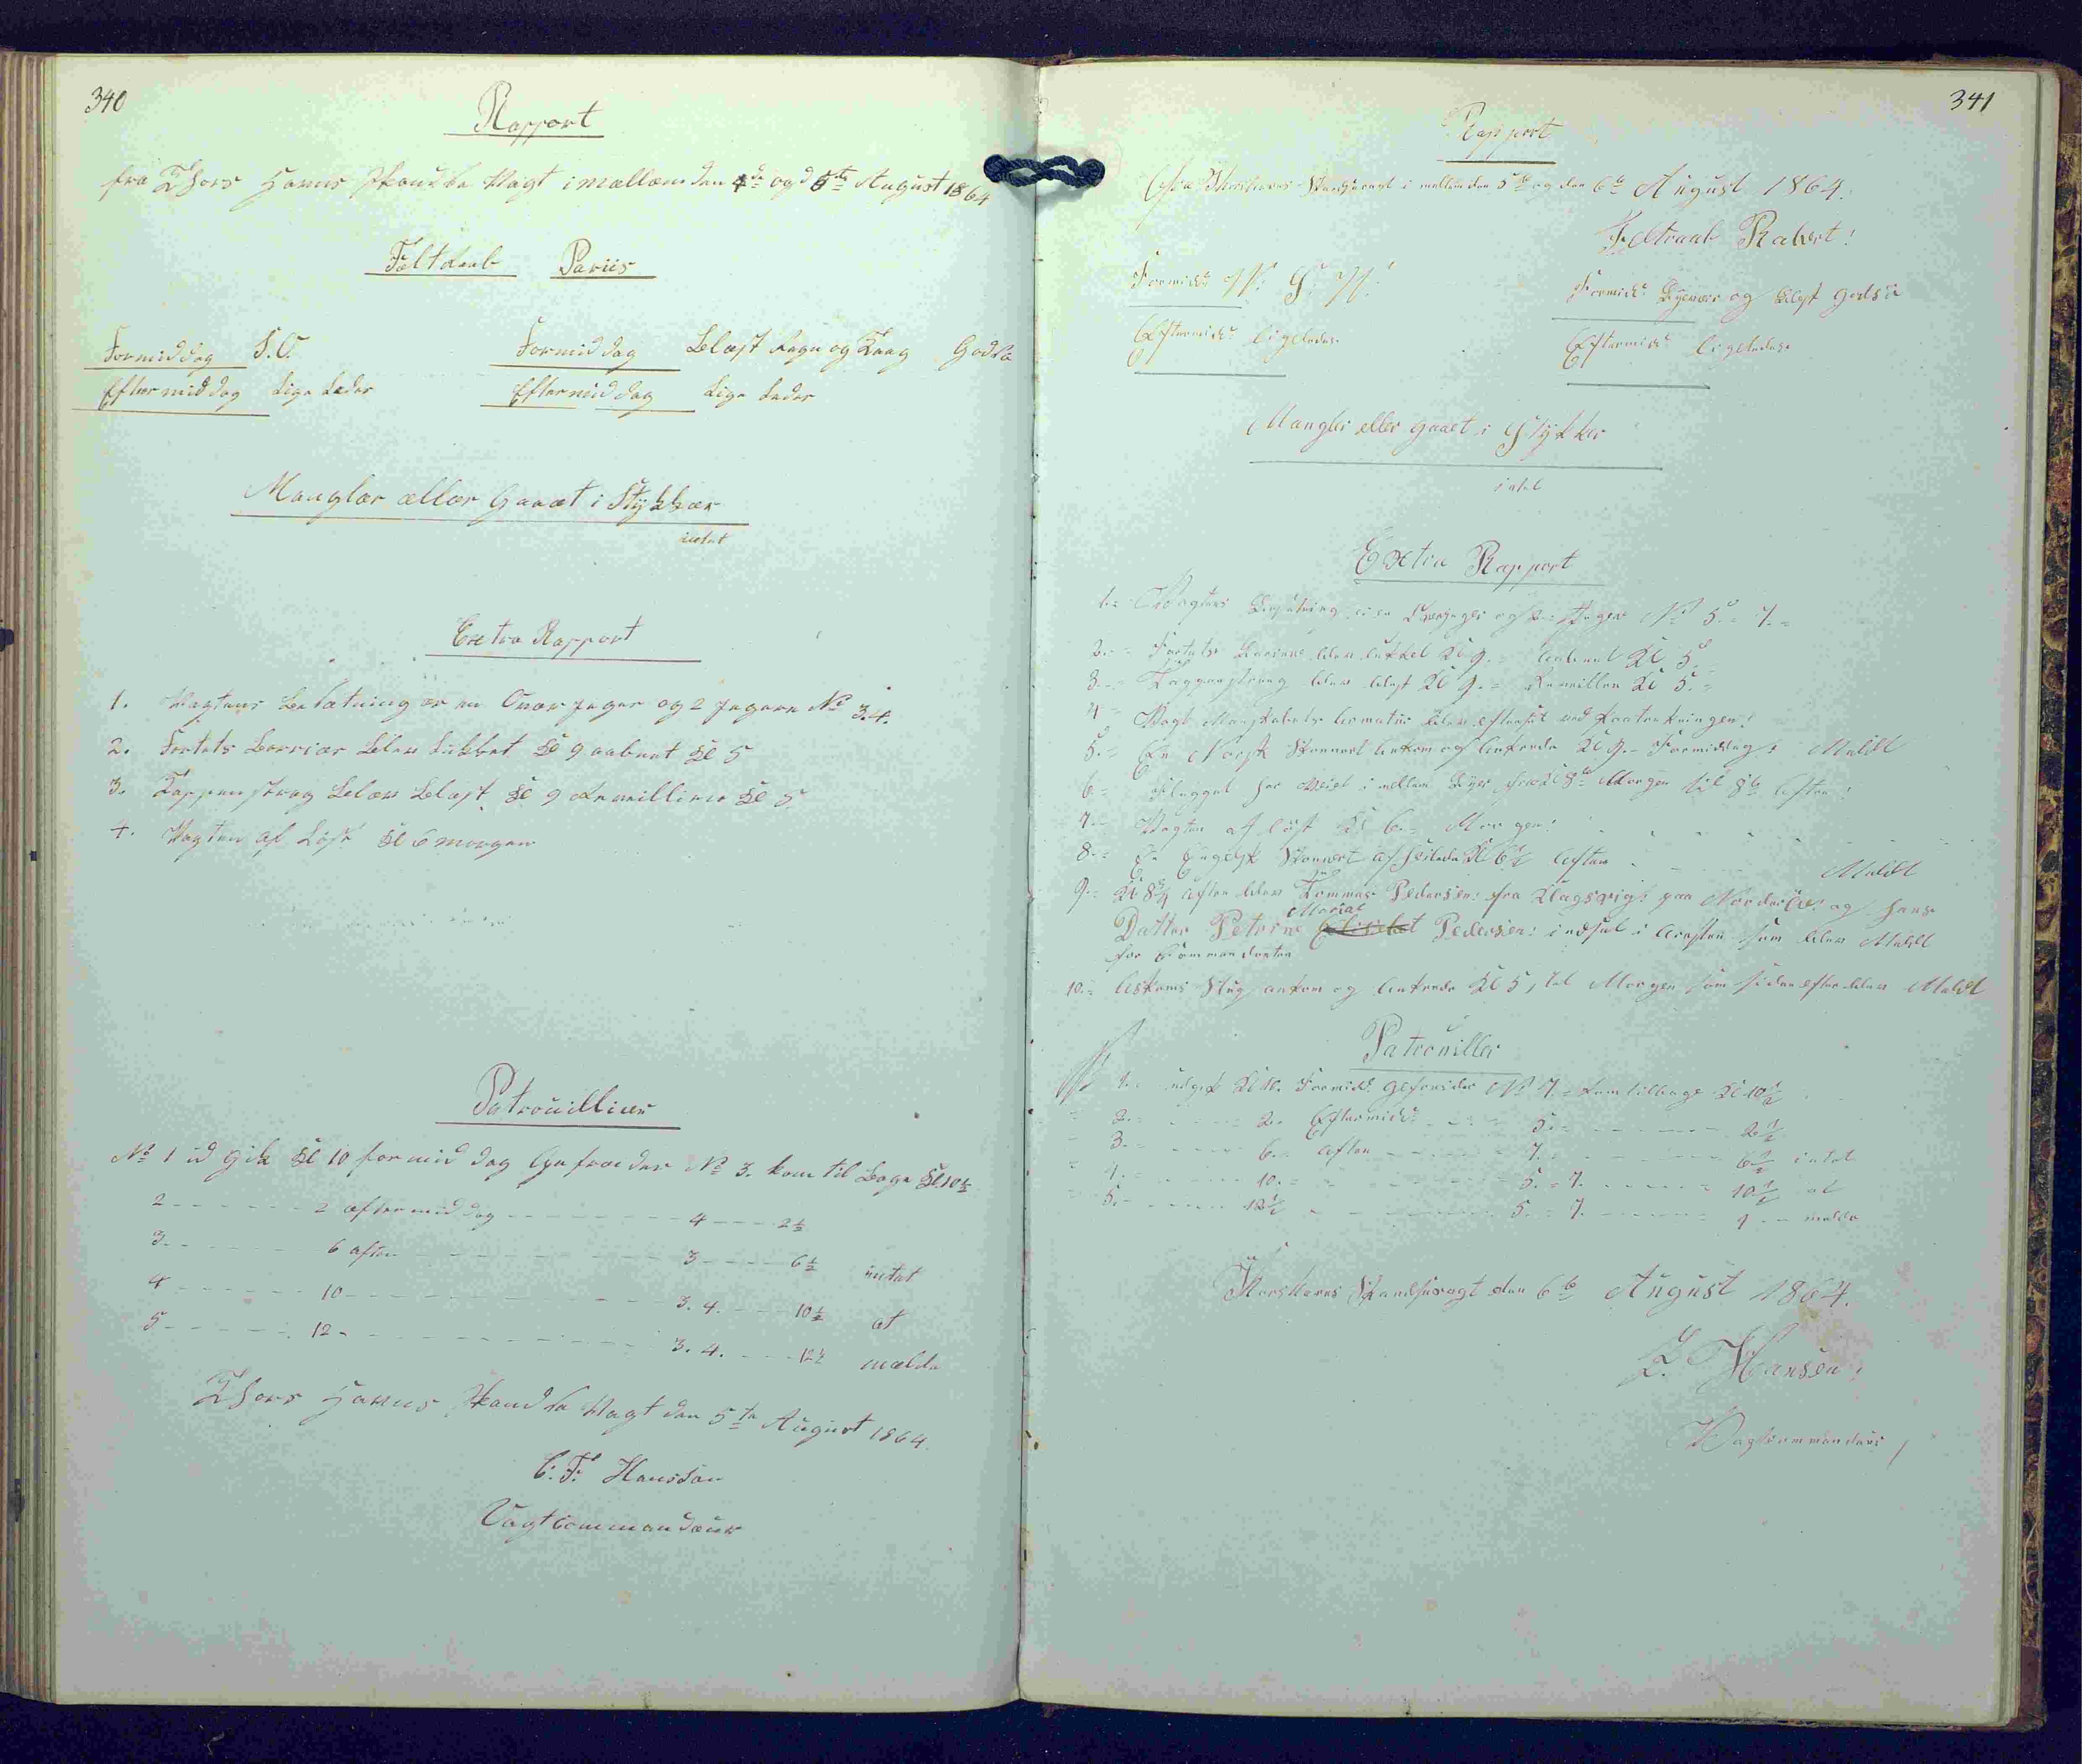 340
Rapport
fra Thors Havns Skandse Vagt imællem den 4de og d 5te August 1864
Feltraab Pariis
Formiddag S.O. Formiddag Blæst Regn og Taag Godsø
Eftermiddag Lige Leder Eftermiddag Lige Leder
Manglær ællær Gaaæt i Stykkær
intet
Extra Rapport
1. Vagtens Besætning ær en Overjæger og 2 Jægere No 3.4.
2. Fortets Barriær blev Lukket Kl 9 aabnet Kl 5
3. Tappenstræg blæv blæst Kl 9 Revillien Kl 5
4. Vagten af Løst Kl 6 morgen
Patrouillier
No 1 ud gik Kl 10 formid dag Gefreider No 3. kom til Bage Kl. 10½
2 - - - - - - 2 æftermiddag - - - - - - - - 4 - - - - 2½
3 - - - - - - 6 aften - - - - - - - - 3 - - - - 6½ intet
4 - - - - - - 10 - - - - - - - - 3. 4. - - - 10½ at
5 - - - - - - 12 - - - - - - - - 3. 4. - - - 12½ mælde
Thors Havns Skandse Vagt den 5te August 1864.
C. F. Hansson
Vagtcommandæur
341
Rapport
fra Thorshavns Skandsevagt i mellem den 5te og den 6te August 1864.
Feltraab Rabert!
Formidd. N. S. N! Formidd. Byevær og Blæst godsø
Eftermidd. ligeledes. Eftermidd. ligeledes.
Mangler eller gaaet i Stykker
intet
Extra Rapport
1. Vagtens Besætning er en Overjæger og 2 Jæger No 5. 7.
2. Fortets Bariere blev lukket Kl 9. aabnet Kl 5.
3. Tappenstræg blev blæst Kl 9. Reveillen Kl 5.
4 Vagt Mandskabets Armatur blev efterset ved
5. En Norsk Skonnert ankom og ankrede Kl 9. Formiddag: Meldt
6 Flagget har Veiet i mellem Byer fra Kl 8 Morgen til 8½ Aften!
7. Vagten af løst Kl 6. Morgen!
8. En Engelsk Skonnert afseilede Kl 6½ Aften Meldt
9. Kl 8¾ Aften blev Tommas Pedersen: fra Klagsvig: paa Norderöe: og hans
Datter Petrine Maria Pedersen: indsat i Aresten som blev Meldt
for Commandanten
10. Slup ankom og Ankrede Kl 5, Morgen som siden efter blev Meldt
Patrouiller
No 1. udgik Kl 10. Formidd. Gefreider No 7. kom tilbage Kl 10½
2. - - - - 2. Eftermidd. - - - 5. - - - - - - 2½
3. - - - - 6. Aften - - - - 7. - - - - - - 6½ intet
4. - - - - 10. - - - - - - 5. 7. - - - - - 10½ at
5. - - - - 12½ - - - - - - 5. 7. - - - - - 1 - melde
Thorshavns Skandsevagt den 6te August 1864.
L. Hansen!
Vagtcommandeur